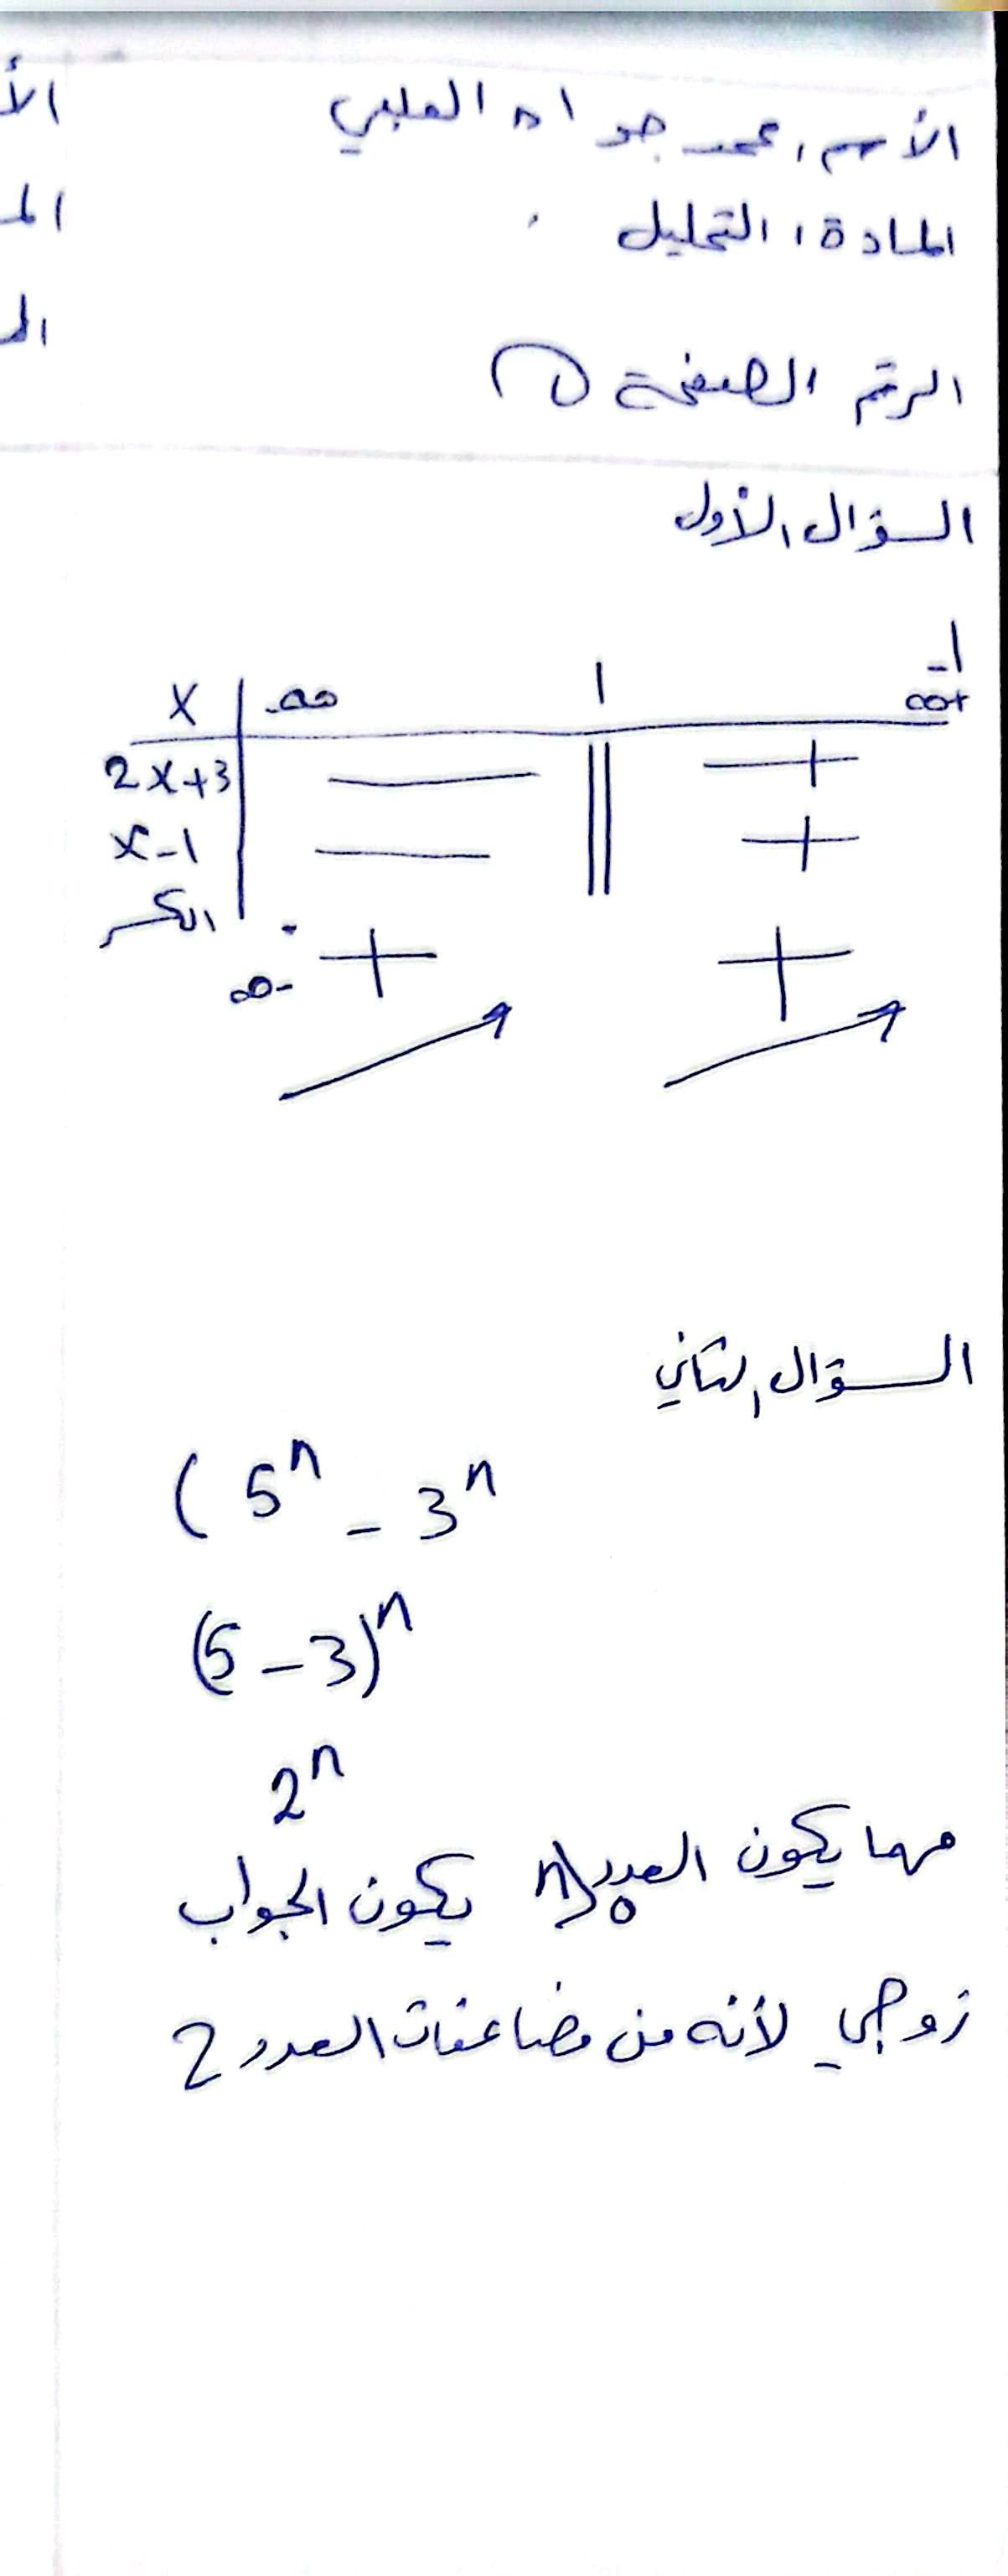 الأسم، محمد جواد العلبي
المادة، التحليل
الرقم الصفحة
السؤال الأول
-1
x -∞ 1 +∞
2x+3 — || +
x-1 — || +
الكسر + +
-∞
السؤال الثاني
( 5ⁿ - 3ⁿ
(5-3)ⁿ
2ⁿ
مهما يكون العدد n يكون الجواب
زوجي لأنه من مضاعفات العدد 2
الأ
الم
الر